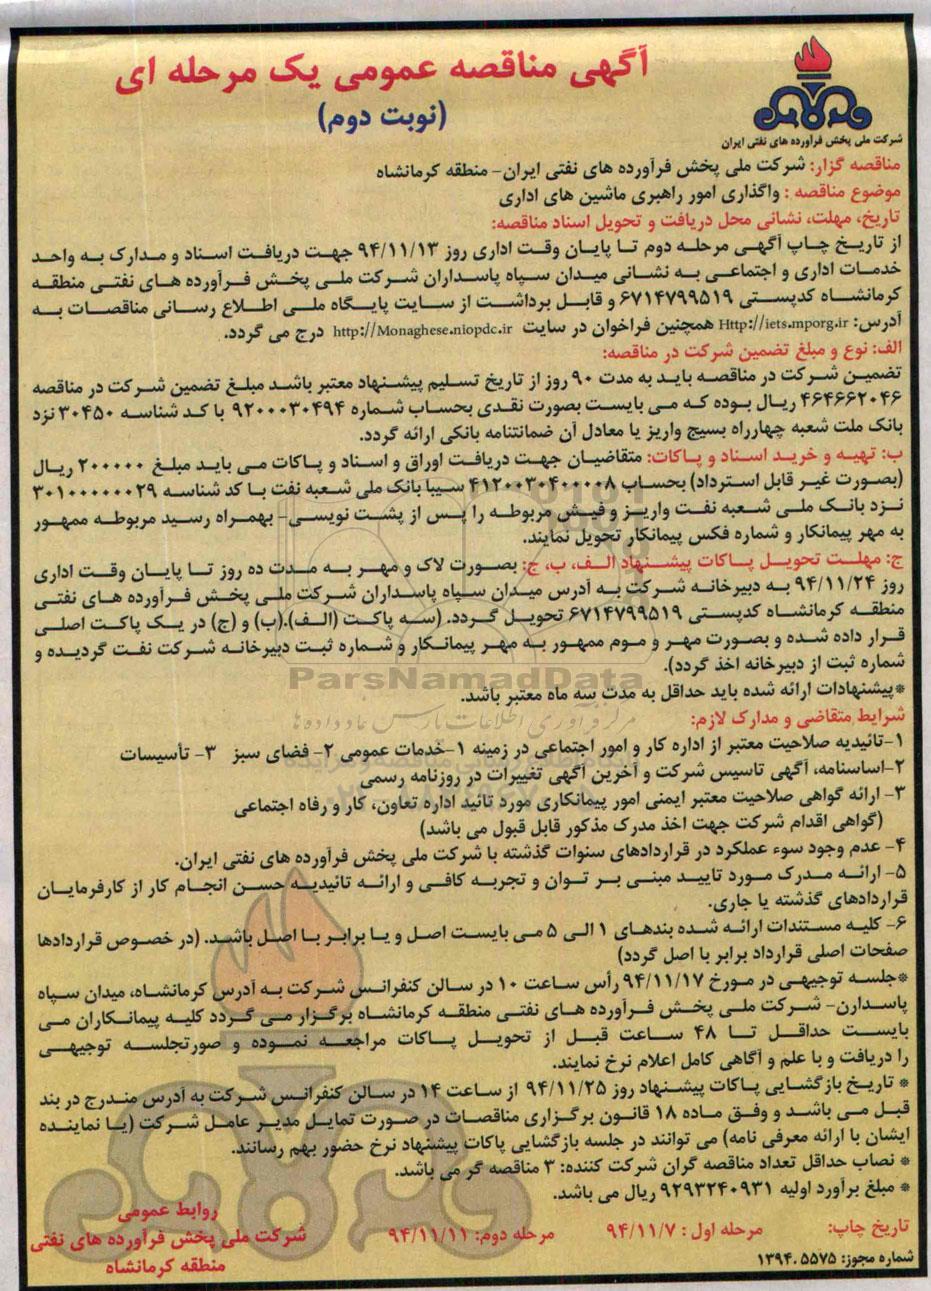 آگهی مناقصه عمومی یک مرحله ای
(نوبت دوم)
شرکت ملی پخش فرآورده های نفتی ایران
مناقصه گزار: شرکت ملی پخش فرآورده های نفتی ایران- منطقه کرمانشاه
موضوع مناقصه : واگذاری امور راهبری ماشین های اداری
تاریخ، مهلت، نشانی محل دریافت و تحویل اسناد مناقصه:
از تاریخ چاپ آگهی مرحله دوم تا پایان وقت اداری روز ۹۴/۱۱/۱۳ جهت دریافت اسناد و مدارک به واحد
خدمات اداری و اجتماعی به نشانی میدان سپاه پاسداران شرکت ملی پخش فرآورده های نفتی منطقه
کرمانشاه کدپستی ۶۷۱۴۷۹۹۵۱۹ و قابل برداشت از سایت پایگاه ملی اطلاع رسانی مناقصات به
آدرس: Http://iets.mporg.ir همچنین فراخوان در سایت http://Monaghese.niopdc.ir درج می گردد.
الف: نوع و مبلغ تضمین شرکت در مناقصه:
تضمین شرکت در مناقصه باید به مدت ۹۰ روز از تاریخ تسلیم پیشنهاد معتبر باشد مبلغ تضمین شرکت در مناقصه
۴۶۴۶۶۲۰۴۶ ریال بوده که می بایست بصورت نقدی بحساب شماره ۹۲۰۰۰۳۰۴۹۴ با کد شناسه ۳۰۴۵۰ نزد
بانک ملت شعبه چهارراه بسیج واریز یا معادل آن ضمانتنامه بانکی ارائه گردد.
ب: تهیه و خرید اسناد و پاکات: متقاضیان جهت دریافت اوراق و اسناد و پاکات می باید مبلغ ۲۰۰۰۰۰ ریال
(بصورت غیر قابل استرداد) بحساب ۴۱۲۰۰۳۰۴۰۰۰۰۸ سیبا بانک ملی شعبه نفت با کد شناسه ۳۰۱۰۰۰۰۰۰۰۲۹
نزد بانک ملی شعبه نفت واریز و فیش مربوطه را پس از پشت نویسی- بهمراه رسید مربوطه ممهور
به مهر پیمانکار و شماره فکس پیمانکار تحویل نمایند.
ج: مهلت تحویل پاکات پیشنهاد الف، ب، ج: بصورت لاک و مهر به مدت ده روز تا پایان وقت اداری
روز ۹۴/۱۱/۲۴ به دبیرخانه شرکت به آدرس میدان سپاه پاسداران شرکت ملی پخش فرآورده های نفتی
منطقه کرمانشاه کدپستی ۶۷۱۴۷۹۹۵۱۹ تحویل گردد. (سه پاکت (الف).(ب) و (ج) در یک پاکت اصلی
قرار داده شده و بصورت مهر و موم ممهور به مهر پیمانکار و شماره ثبت دبیرخانه شرکت نفت گردیده و
شماره ثبت از دبیرخانه اخذ گردد).
ParsNamadData
*پیشنهادات ارائه شده باید حداقل به مدت سه ماه معتبر باشد.
شرایط متقاضی و مدارک لازم:
۱-تائیدیه صلاحیت معتبر از اداره کار و امور اجتماعی در زمینه ۱-خدمات عمومی ۲- فضای سبز ۳- تأسیسات
۲-اساسنامه، آگهی تاسیس شرکت و آخرین آگهی تغییرات در روزنامه رسمی
۳- ارائه گواهی صلاحیت معتبر ایمنی امور پیمانکاری مورد تائید اداره تعاون، کار و رفاه اجتماعی
(گواهی اقدام شرکت جهت اخذ مدرک مذکور قابل قبول می باشد)
۴- عدم وجود سوء عملکرد در قراردادهای سنوات گذشته با شرکت ملی پخش فرآورده های نفتی ایران.
۵- ارائه مدرک مورد تایید مبنی بر توان و تجربه کافی و ارائه تائیدیه حسن انجام کار از کارفرمایان
قراردادهای گذشته یا جاری.
۶- کلیه مستندات ارائه شده بندهای ۱ الی ۵ می بایست اصل و یا برابر با اصل باشد. (در خصوص قراردادها
صفحات اصلی قرارداد برابر با اصل گردد)
*جلسه توجیهی در مورخ ۹۴/۱۱/۱۷ رأس ساعت ۱۰ در سالن کنفرانس شرکت به آدرس کرمانشاه، میدان سپاه
پاسدارن- شرکت ملی پخش فرآورده های نفتی منطقه کرمانشاه برگزار می گردد کلیه پیمانکاران می
بایست حداقل تا ۴۸ ساعت قبل از تحویل پاکات مراجعه نموده و صورتجلسه توجیهی
را دریافت و با علم و آگاهی کامل اعلام نرخ نمایند.
* تاریخ بازگشایی پاکات پیشنهاد روز ۹۴/۱۱/۲۵ از ساعت ۱۴ در سالن کنفرانس شرکت به آدرس مندرج در بند
قبل می باشد و وفق ماده ۱۸ قانون برگزاری مناقصات در صورت تمایل مدیر عامل شرکت (یا نماینده
ایشان با ارائه معرفی نامه) می توانند در جلسه بازگشایی پاکات پیشنهاد نرخ حضور بهم رسانند.
* نصاب حداقل تعداد مناقصه گران شرکت کننده: ۳ مناقصه گر می باشد.
* مبلغ برآورد اولیه ۹۲۹۳۲۴۰۹۳۱ ریال می باشد.
تاریخ چاپ: مرحله اول : ۹۴/۱۱/۷ مرحله دوم: ۹۴/۱۱/۱۱
شماره مجوز: ۱۳۹۴.۵۵۷۵
روابط عمومی
شرکت ملی پخش فرآورده های نفتی
منطقه کرمانشاه